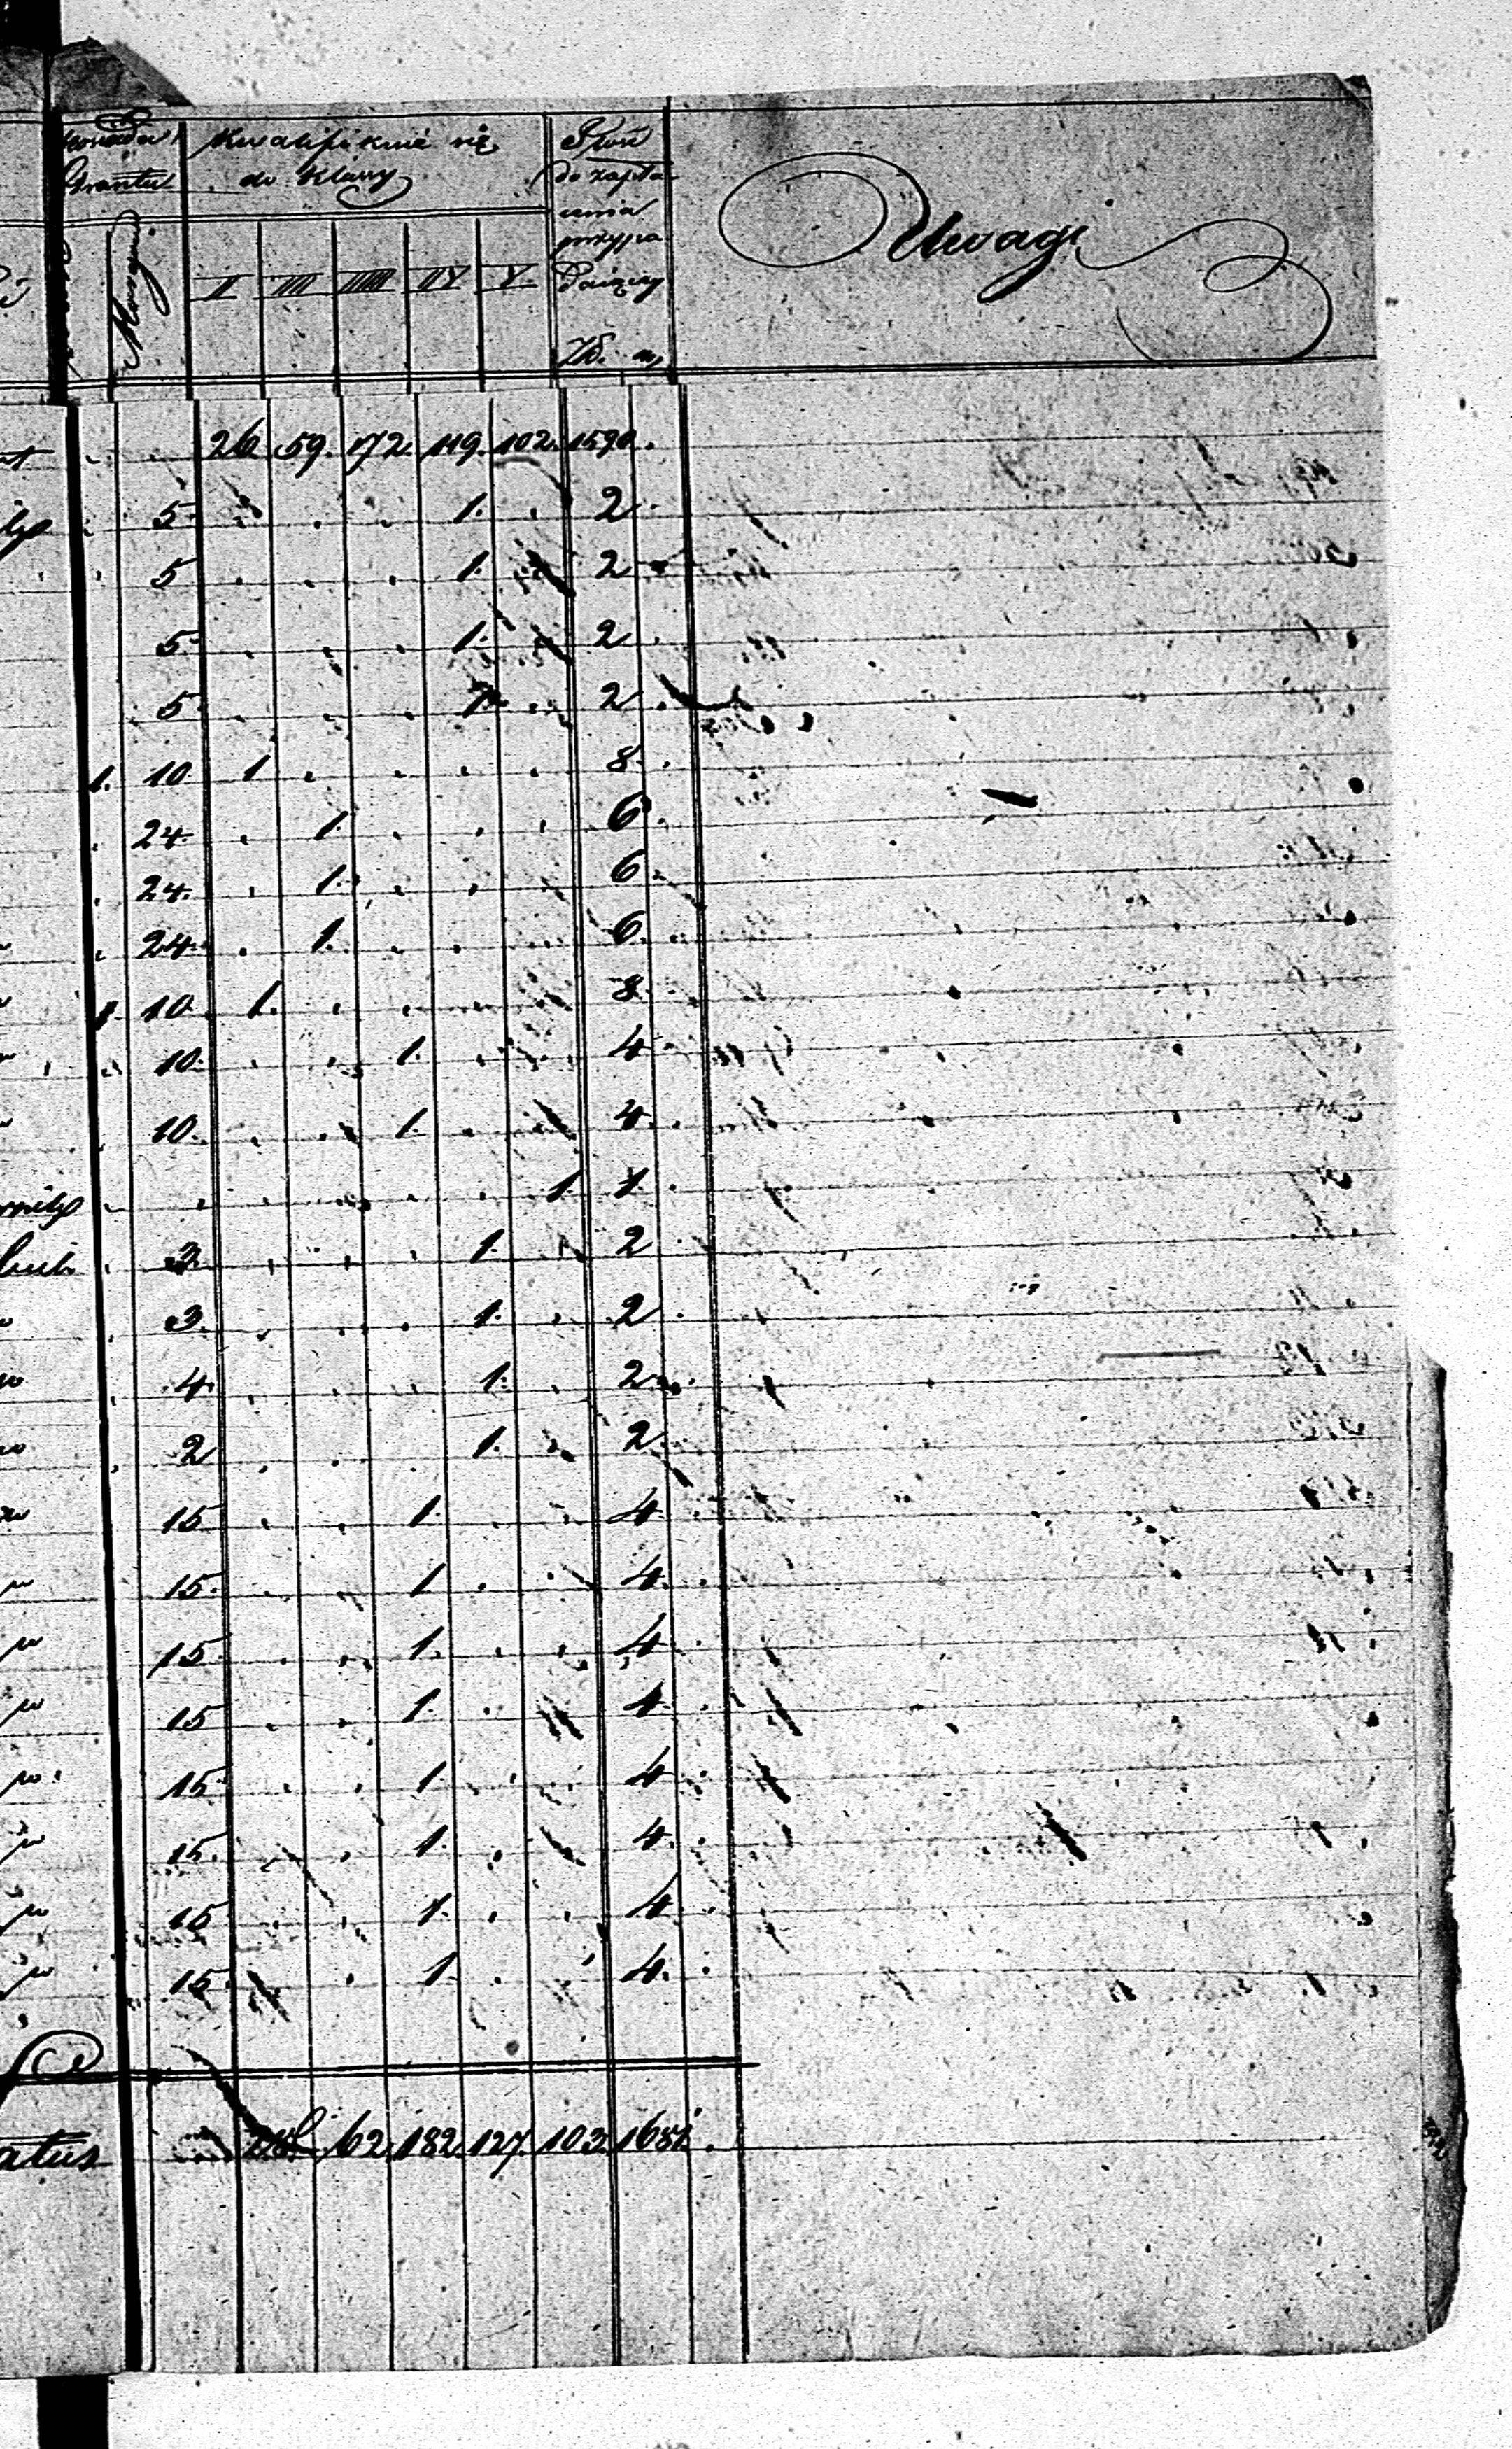 Posiada Kwalifikuie się Ilość
Gruntu do Klassy do zapła
cenia
przypa
daiącey
Uwagi
Morgi II III IIII IV V
Zł. gr
26. 59. 172. 119. 102. 1590.
5 . . . 1. . 2
5 . . . 1. 2
5 . . . 1. 2
5 . . . 1. . 2
1. 10 1 . . . . 8
24. . 1. . . . 6
24. . 1. . . 6
24. . 1. . . . 6
1. 10. 1. . . . 8
10. . . 1. . 4
10. . . 1. . 4
. . . . 1 1
3. . . . 1. 2
3. . . . 1. . 2
4. . . . 1. . 2
2 . . . 1. 2
15 . . 1. . . 4
15. . . 1. . . 4
15 . . 1. . . 4
15 . . 1. . 4
15 . . 1. . . 4
15. . 1. . 4
15 . . 1. . . 4
15. . 1. . 4
62. 182. 127. 103. 1681.